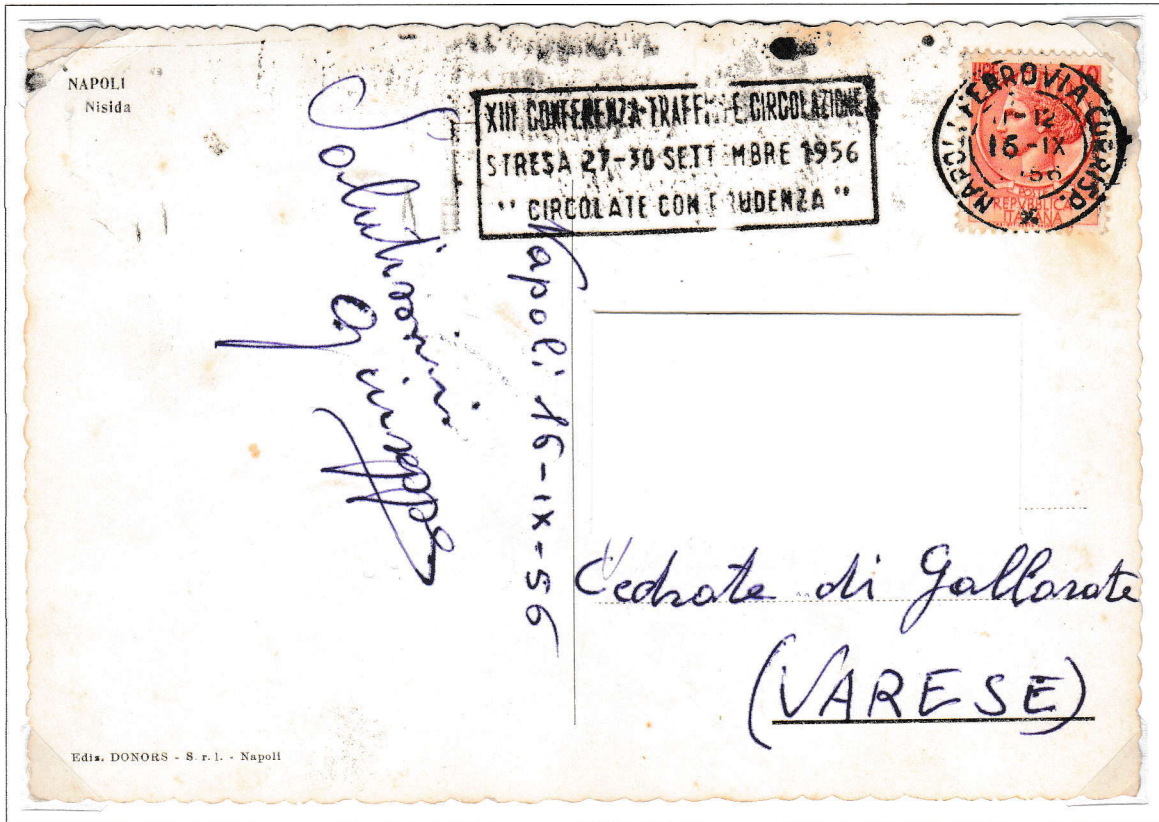 NAPOLI
Nisida
XIII CONFERENZA TRAFFICO E CIRCOLAZIONE
STRESA 27-30 SETTEMBRE 1956
"CIRCOLATE CON PRUDENZA"
NAPOLI FERROVIA CORRISP.
16-IX
LIRE
POSTE
REPVBLICA
ITALIANA
Napoli 16-ix-56
Salutissimi
Giuseppe
Cedrate di Gallarate
(VARESE)
Ediz. DONORS - S. r. l. - Napoli